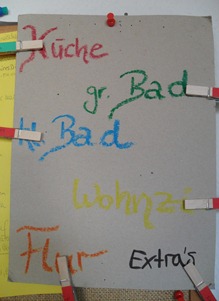 Küche
gr. Bad
kl. Bad
Wohnzi
Flur
Extra's